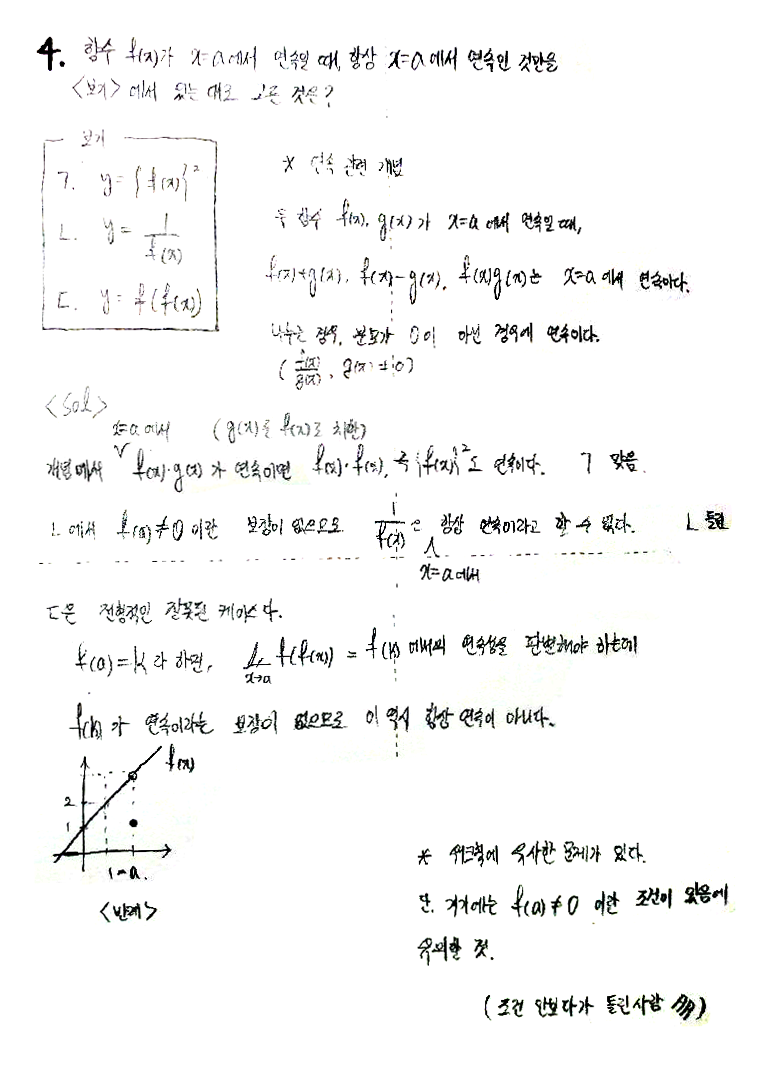 4. 함수 f(x)가 x=a에서 연속일 때, 항상 x=a에서 연속인 것만을
<보기>에서 있는 대로 고른 것은?
보기
ㄱ. y={f(x)}²
ㄴ. y=1/f(x)
ㄷ. y=f(f(x))
* 연속 관련 개념
두 함수 f(x), g(x)가 x=a에서 연속일 때,
f(x)+g(x), f(x)-g(x), f(x)g(x)는 x=a에서 연속이다.
나누는 경우, 분모가 0이 아닌 경우에 연속이다.
(f(x)/g(x), g(x)≠0)
<Sol>
x=a에서 (g(x)를 f(x)로 치환)
개념에서 ∨ f(x)·g(x)가 연속이면 f(x)·f(x), 즉 {f(x)}²도 연속이다. ㄱ 맞음.
ㄴ에서 f(a)≠0이란 보장이 없으므로 1/f(x)은 항상 연속이라고 할 수 없다. ㄴ 틀림
x=a에서
ㄷ은 전형적인 잘못된 케이스다.
f(a)=k라 하면, lim x→a f(f(x)) = f(k)에서의 연속성을 판별해야 하는데
f(k)가 연속이라는 보장이 없으므로 이 역시 항상 연속이 아니다.
f(x)
2
1
1=a.
<반례>
* 워크북에 유사한 문제가 있다.
단, 거기에는 f(a)≠0 이란 조건이 있음에
유의할 것.
(조건 안보다가 틀린사람 多)